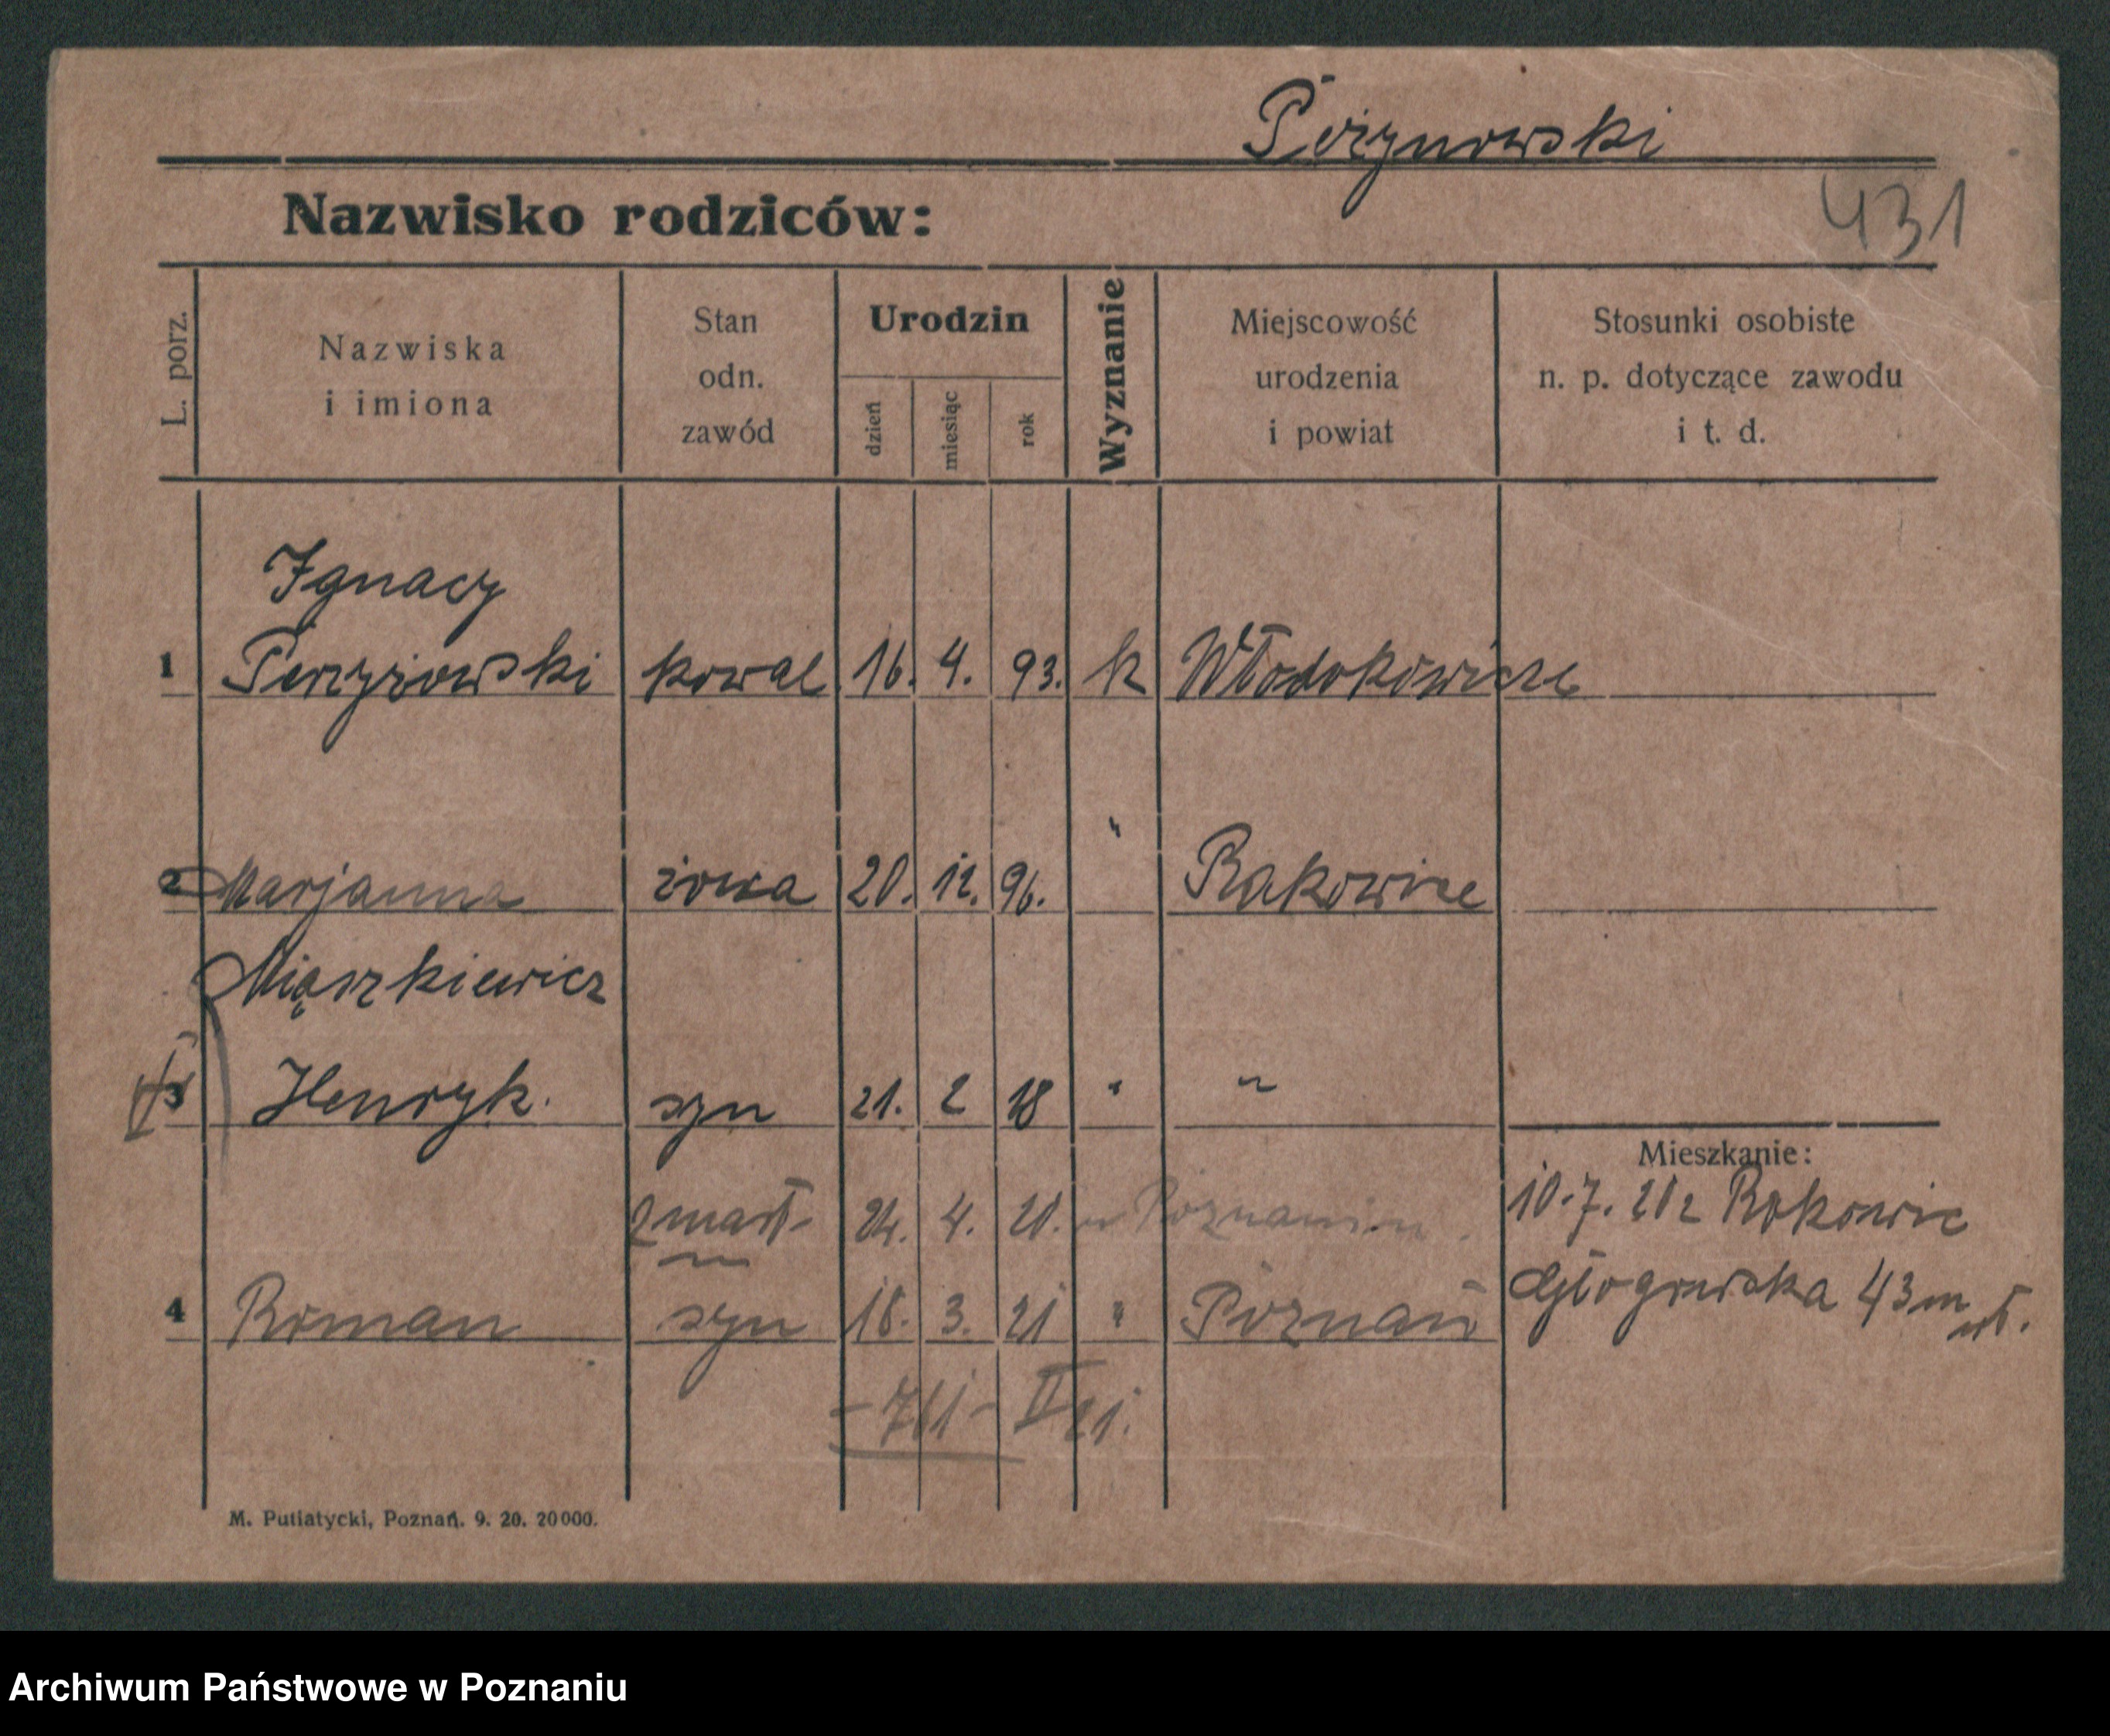 Perzynowski
Nazwisko rodziców:
431
L. porz.
Nazwiska
i imiona
Stan
odn.
zawód
Urodzin
dzień
miesiąc
rok
Wyznanie
Miejscowość
urodzenia
i powiat
Stosunki osobiste
n. p. dotyczące zawodu
i t. d.
Ignacy
1 Perzynowski kowal 16. 4. 93. k Włodokowice
"
2 Marjanna żona 20. 12. 96. Rakowice
Miąszkiewicz
3 Henryk. syn 21. 2 18 " "
Mieszkanie:
zmarł 24. 4. 21. w Poznaniu.
10.7.20 z Rakowic
4 Roman syn 18. 3. 21 " Poznań
Głogowska 43
II 21.
M. Putiatycki, Poznań. 9. 20. 20000.
Archiwum Państwowe w Poznaniu